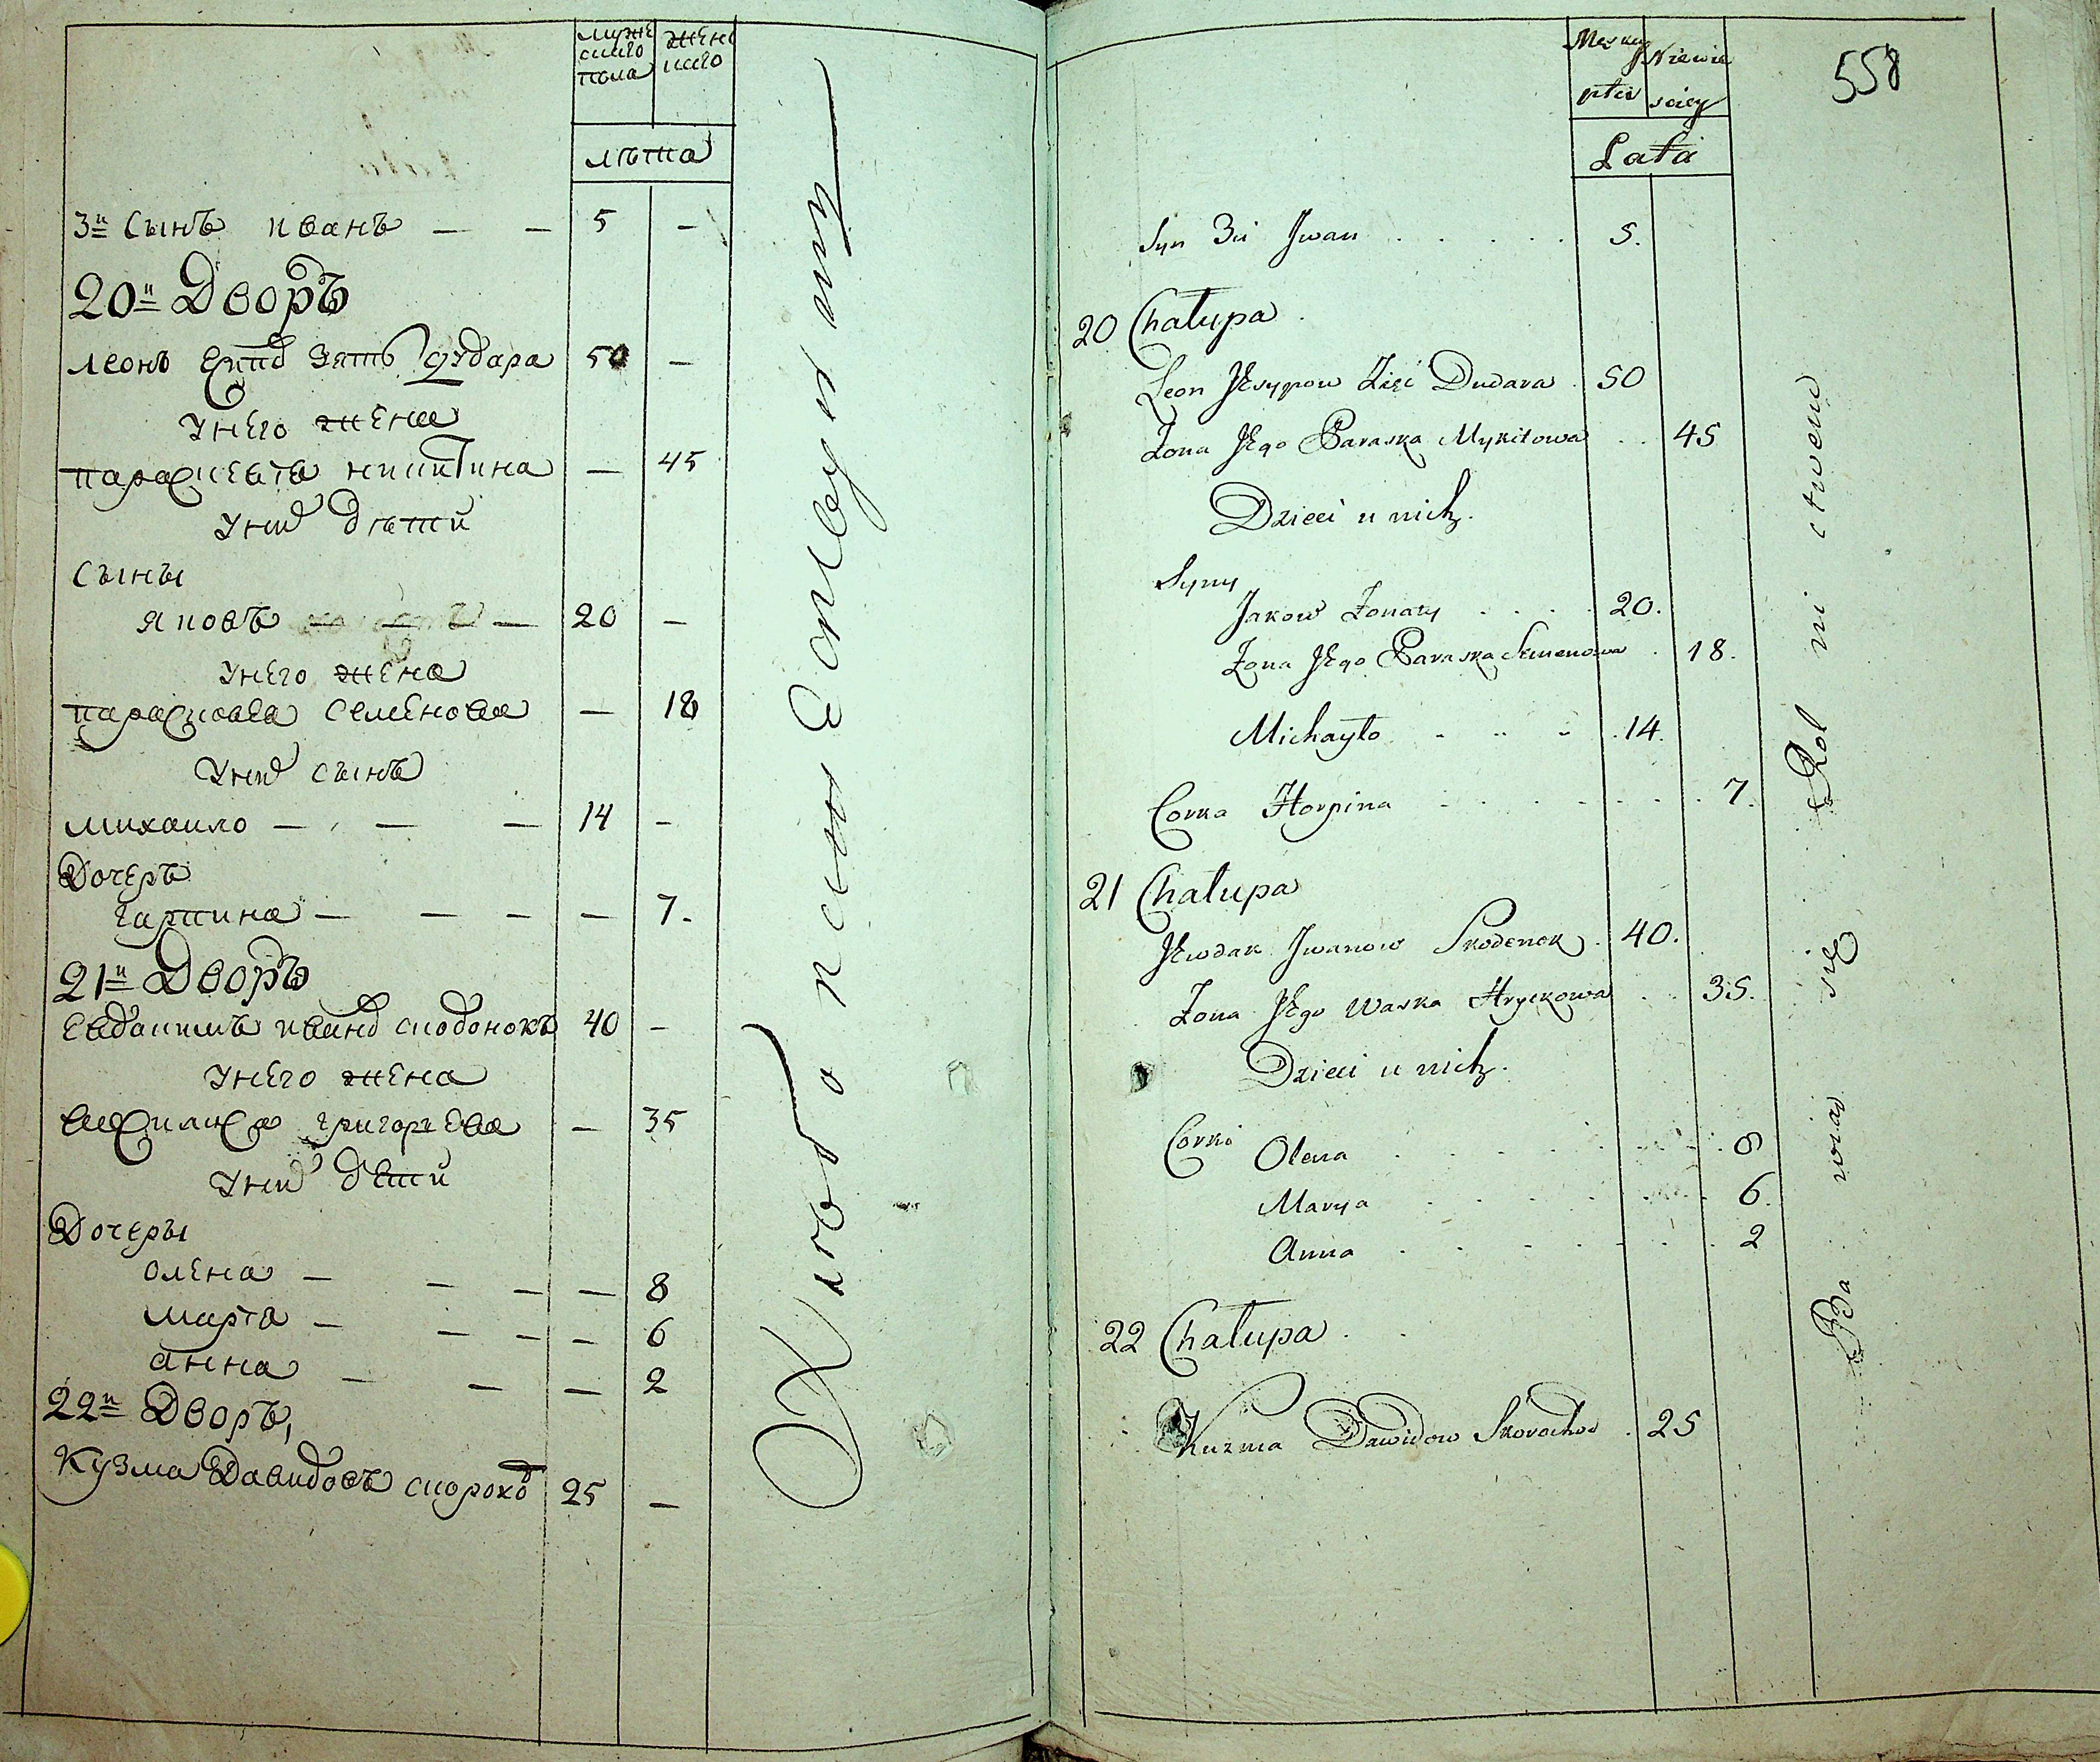 мужескаго пола
женскаго
лѣта
3й Сынъ иванъ — — 5 —
20й Дворъ
леонъ Есипов зять дударa 50 —
у него жена
парасковья никитина — 45
у них дѣти
Сыны
яковъ — 20 —
у него жена
парасковея семенова — 18
у них сынъ
михаило — — — 14 —
Дочеръ
гарпина — — — — 7.
21й Дворъ
евдокимъ иванов скоденокъ 40 —
у него жена
василиса григорьева — 35
у них дети
Дочеры
олена — — — — 8
марья — — — — 6
анна — — — 2
22й Дворъ,
Кузма Давидовъ скороход 25 —
558
Męskiey płci
Niewiesciey
Lata
Syn 3ci Jwan . . . . . 5.
20 Chałupa .
Leon Jesypow Zięć Dudara . 50
Zona Jego Paraska Mykitowa . . 45
Dzieci u nich.
Syny
Jakow Zonaty . . . . 20.
Zona Jego Paraska Semenowa . 18.
Michayło . . . . 14.
Corka Horpina . . . . . . . 7.
21 Chałupa
Jewdak Jwanow Skodenok . 40.
Zona Jego Waska Hryckowa . . 35.
Dzieci u nich.
Corki Olena . . . . . . . . 8
Marya . . . . . . . 6.
Anna . . . . . . . 2
22 Chałupa . .
Kuzma Dawidow Skorochod . 25
Ba wiąą się Rol ni ctwem